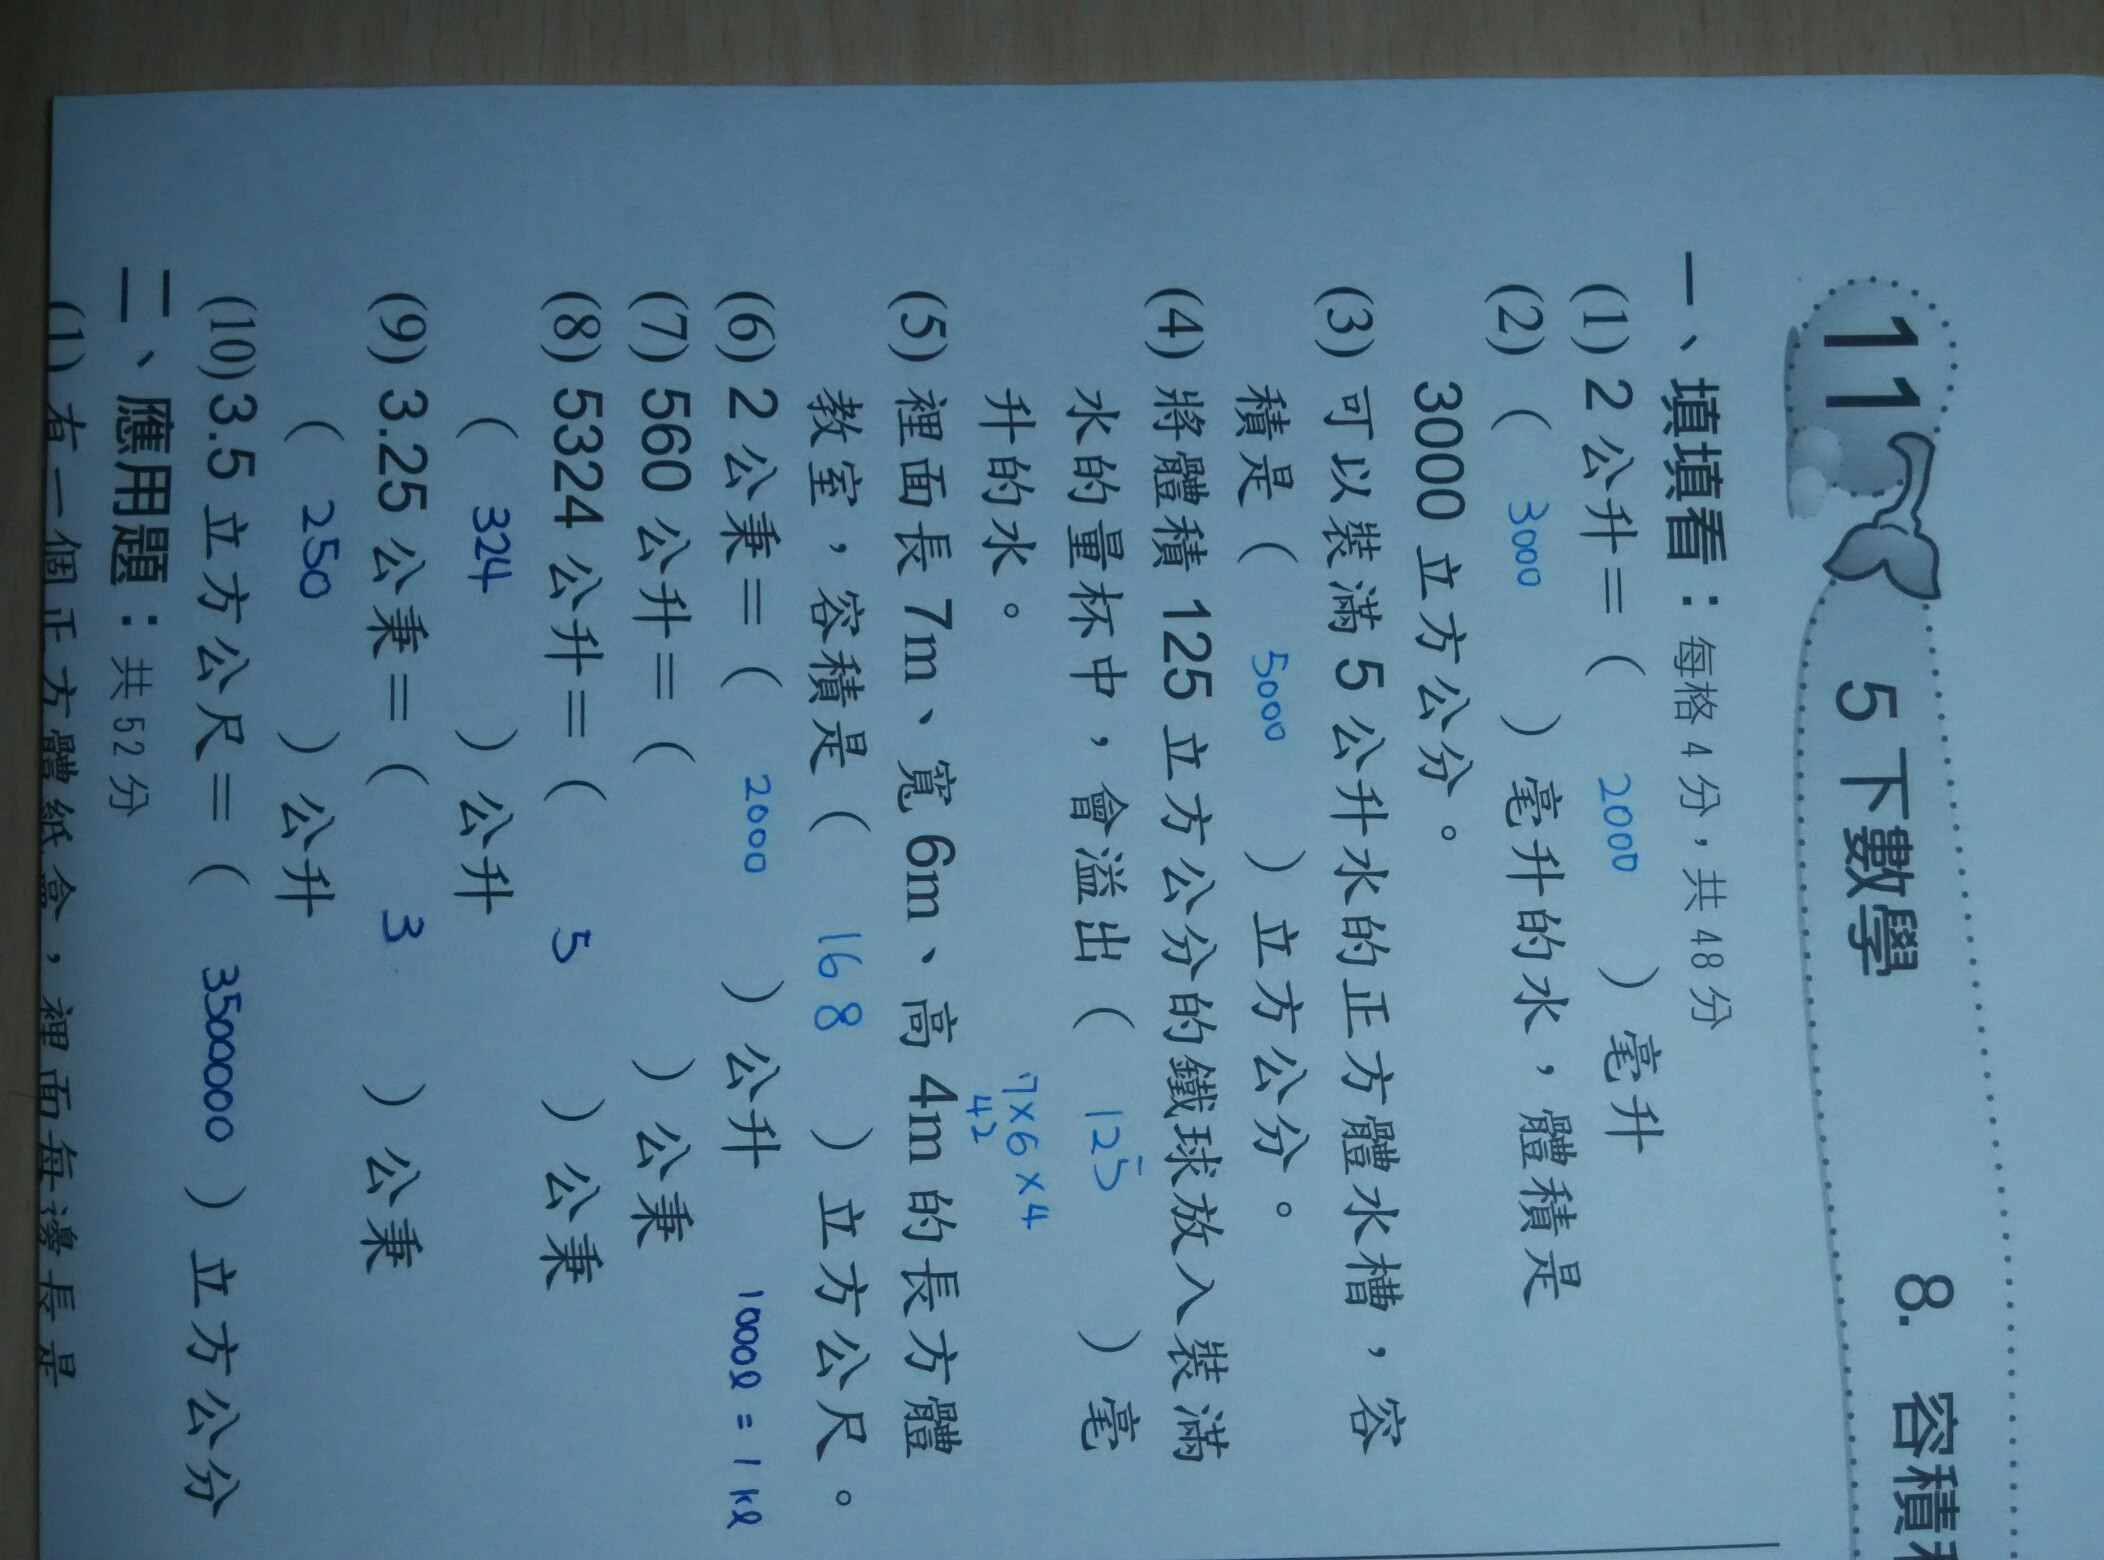 11 5下數學 8. 容積
一、填填看：每格4分，共48分
(1) 2公升＝( 2000 )毫升
(2) ( 3000 )毫升的水，體積是
3000立方公分。
(3) 可以裝滿5公升水的正方體水槽，容
積是( 5000 )立方公分。
(4) 將體積125立方公分的鐵球放入裝滿
水的量杯中，會溢出( 125 )毫
升的水。
7×6×4
42
(5) 裡面長7m、寬6m、高4m的長方體
教室，容積是( 168 )立方公尺。
(6) 2公秉＝( 2000 )公升 1000ℓ = 1kℓ
(7) 560公升＝( )公秉
(8) 5324公升＝( 5 )公秉
( 324 )公升
(9) 3.25公秉＝( 3 )公秉
( 250 )公升
(10) 3.5立方公尺＝( 3500000 )立方公分
二、應用題：共52分
(1) 有一個正方體紙盒，裡面每邊長是